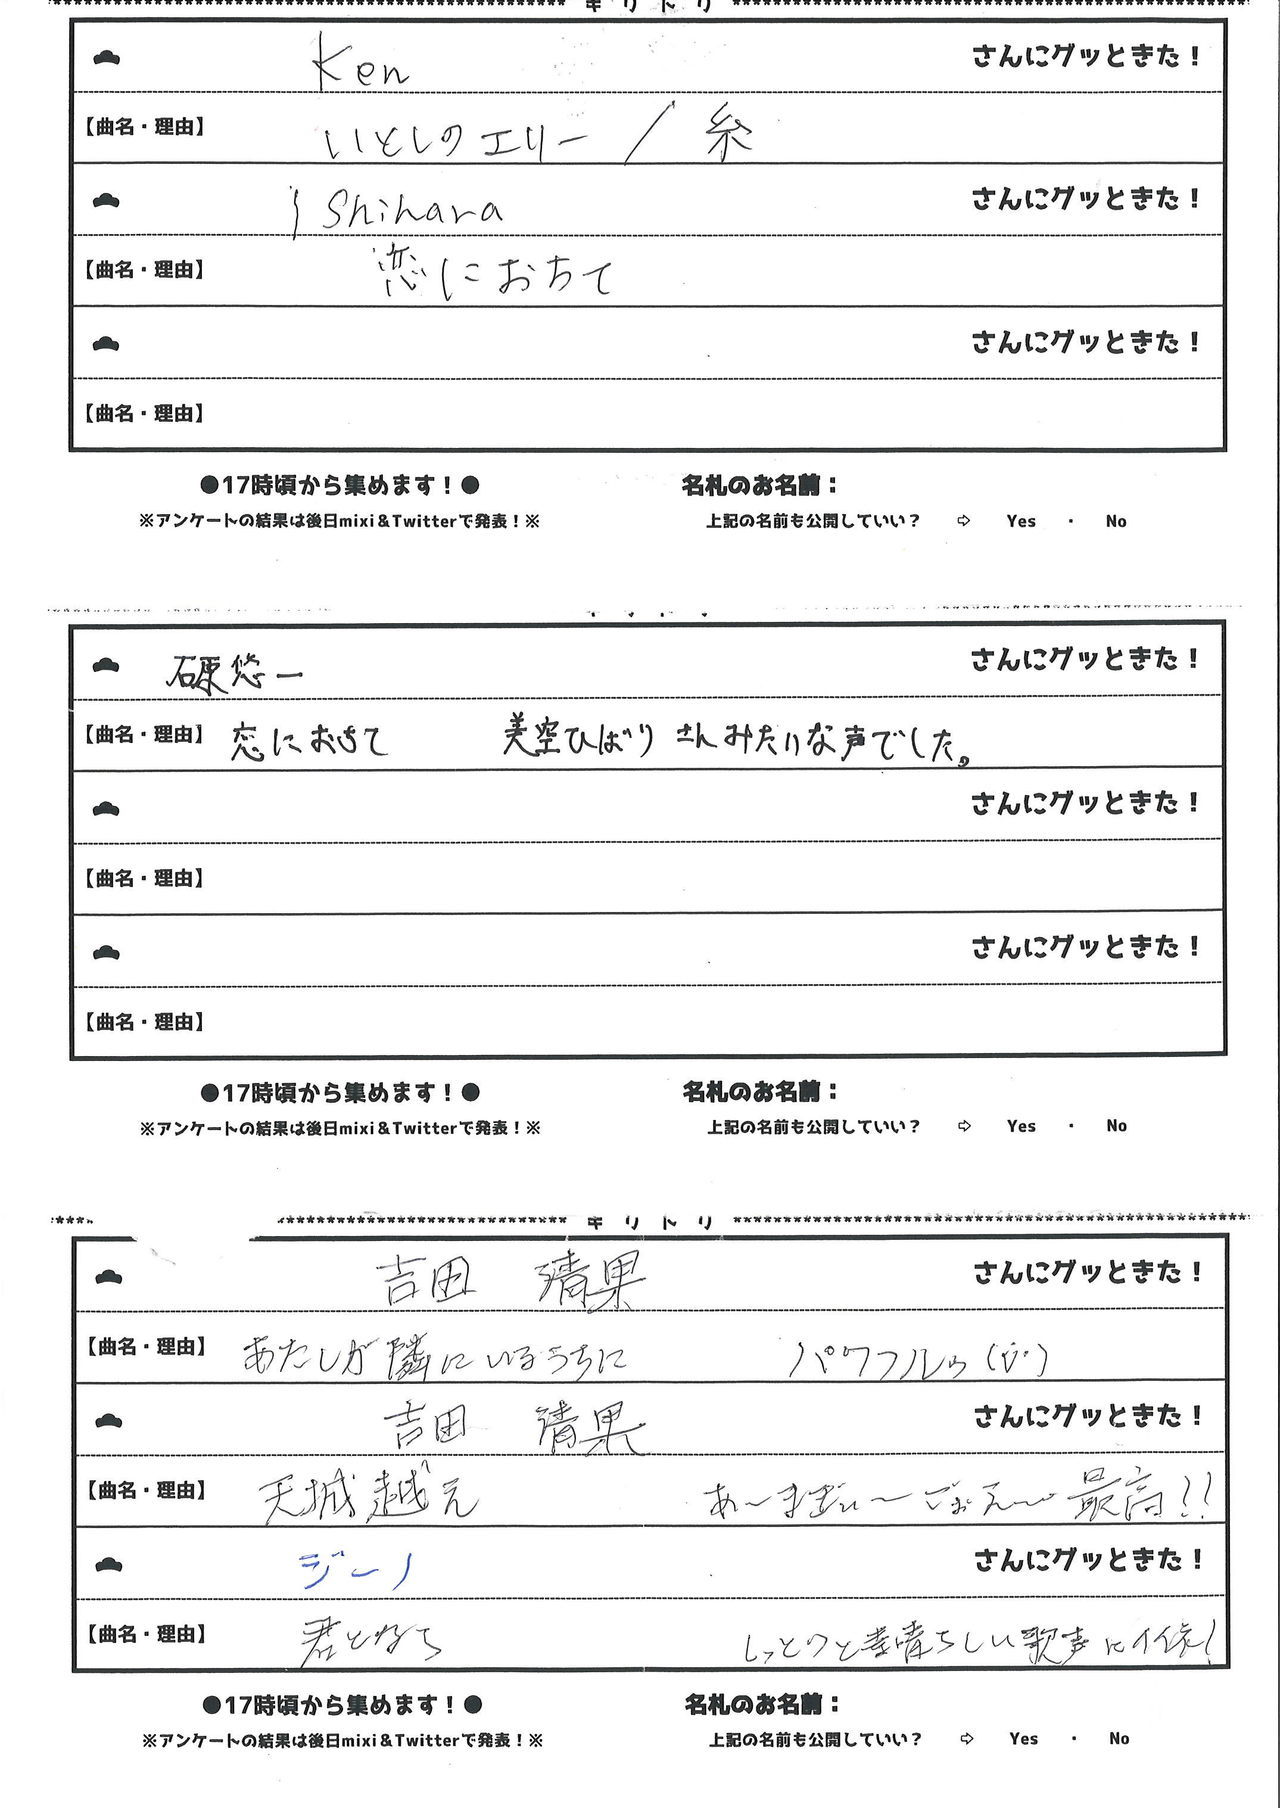 キリトリ
Ken さんにグッときた！
【曲名・理由】 いとしのエリー / 糸
Ishihara さんにグッときた！
【曲名・理由】 恋におちて
さんにグッときた！
【曲名・理由】
●17時頃から集めます！● 名札のお名前：
※アンケートの結果は後日mixi＆Twitterで発表！※ 上記の名前も公開していい？ ⇨ Yes ・ No
石原悠一 さんにグッときた！
【曲名・理由】 恋におちて 美空ひばりさんみたいな声でした。
さんにグッときた！
【曲名・理由】
さんにグッときた！
【曲名・理由】
●17時頃から集めます！● 名札のお名前：
※アンケートの結果は後日mixi＆Twitterで発表！※ 上記の名前も公開していい？ ⇨ Yes ・ No
キリトリ
吉田 清果 さんにグッときた！
【曲名・理由】 あたしが隣にいるうちに パワフルゥ
吉田 清果 さんにグッときた！
【曲名・理由】 天城越え あ〜まぎぃ〜ごぉえ〜 最高!!
ジーノ さんにグッときた！
【曲名・理由】 君となら しっとりと素晴らしい歌声に
●17時頃から集めます！● 名札のお名前：
※アンケートの結果は後日mixi＆Twitterで発表！※ 上記の名前も公開していい？ ⇨ Yes ・ No